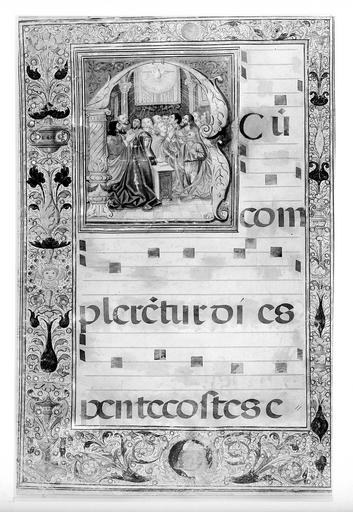 Cū
com
plerētur di es
pentecostes e